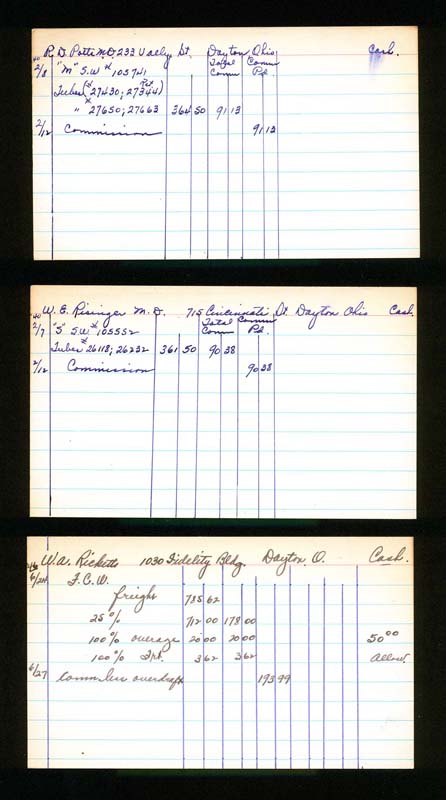 40 R. D. Potts M.D. 233 Valley St. Dayton Ohio Cash.
2/8 "M" S.W # 105741 Total Comm Comm Pd.
Tubes (# 27430; 27344)
" # 27650; 27663 364 50 91 13
2/12 Commission 91 13
40 W. E. Risinger M.D. 715 Cincinnati St. Dayton Ohio Cash.
2/7 "S" S.W # 105552 Total Comm Comm Pd.
Tubes # 26118; 26232 361 50 90 38
2/12 Commission 90 38
W. A. Ricketts 1030 Fidelity Bldg. Dayton, O. Cash.
6/24 F.C.W.
freight 735 62
25% 712 00 178 00
100% overage 20 00 20 00 50 00
100% Frt. 3 62 3 62 Allow
6/27 Comm less overdraft 193 99